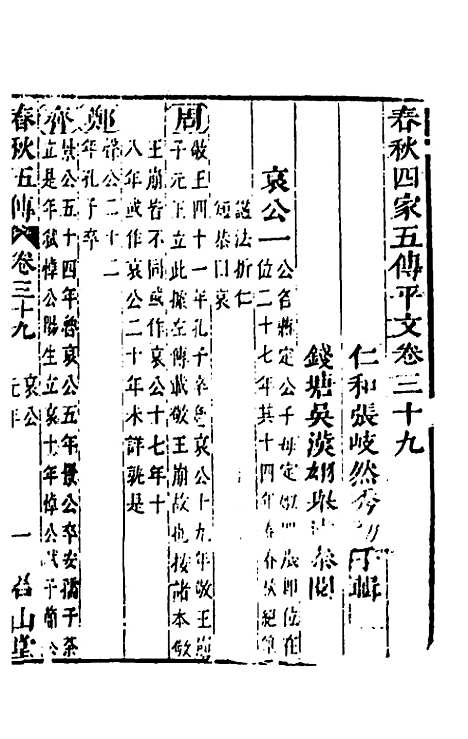 春秋四家五傳平文卷三十九
仁和張岐然秀初父輯
錢塘吳漢翊參閱
哀公一
公名蔣定公子母定姒四歲即位在
位二十七年其十四年春秋絕筆
諡法折仁
短恭曰哀
周
敬王四十一年孔子卒魯哀公十九年敬王崩
子元王立此據左傳載敬王崩故也按諸本敬
王崩皆不同或作哀公十七年十
八年或作哀公二十年未詳孰是
鄭
聲公二十二
年孔子卒
齊
景公五十四年魯哀公五年景公卒安孺子荼
立是年弒悼公陽生立哀十年悼公弒子簡公
春秋五傳
卷三十九
哀公
元年
一
山堂